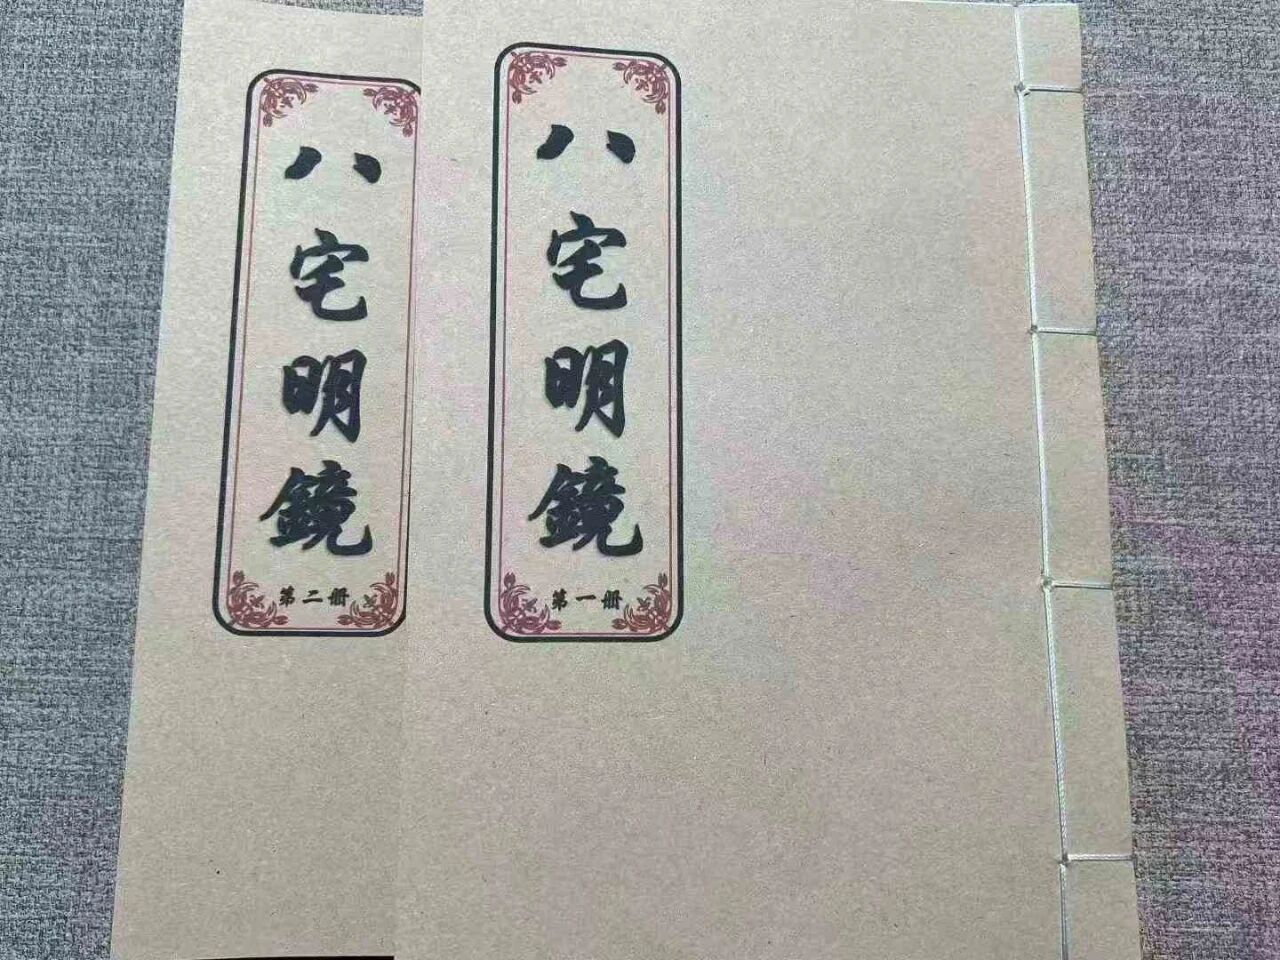 八宅明鏡
第一册
八宅明鏡
第二册